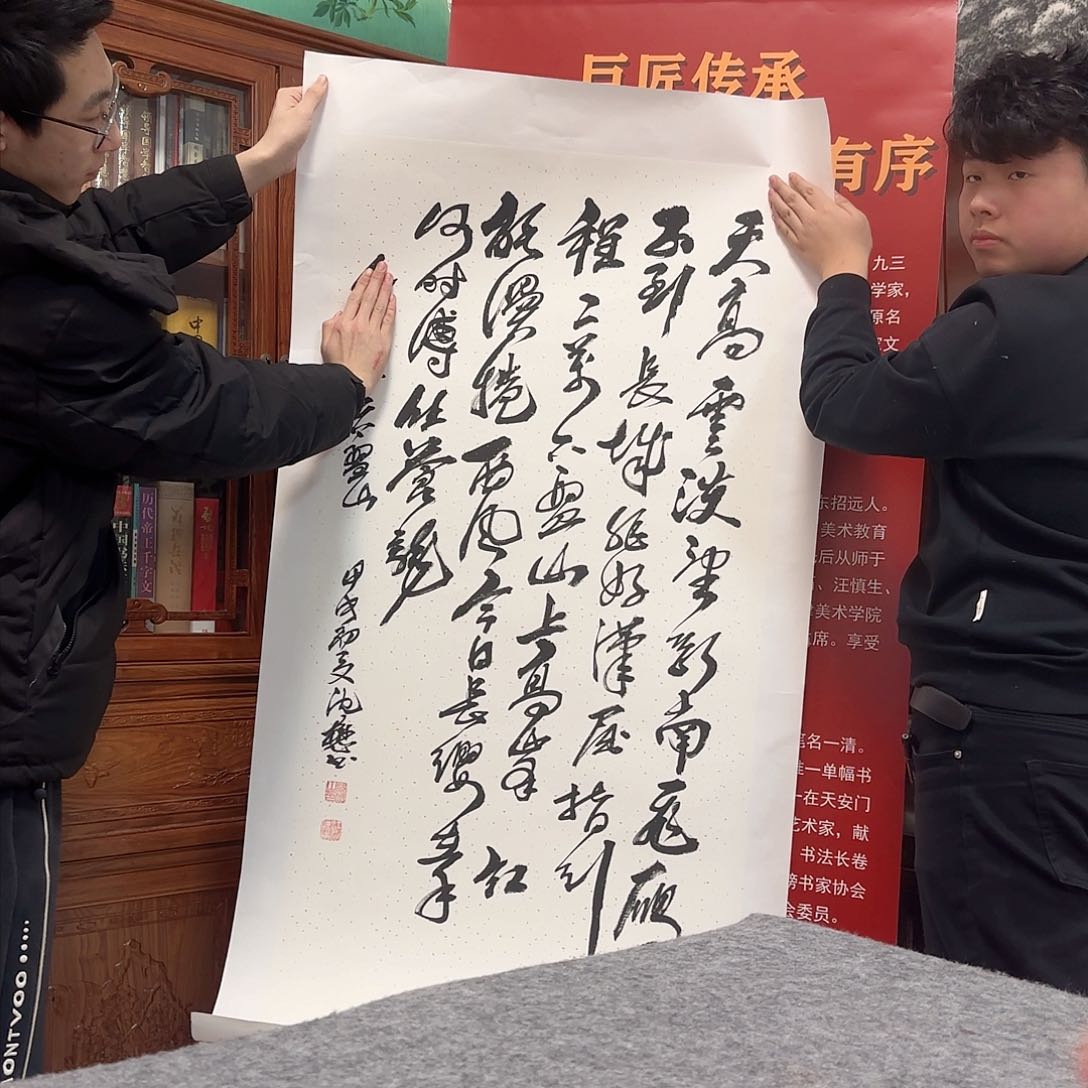 巨匠传承
有序
天高雲淡望斷南飛雁
不到長城非好漢屈指行
程二萬六盤山上高峰紅
旗漫捲西風今日長纓在手
何時縛住蒼龍
六盤山
初夏
九三
学家，
原名
东招远人。
美术教育
后从师于
、汪慎生、
美术学院
席。享受
笔名一清。
唯一单幅书
一在天安门
艺术家，献
书法长卷
榜书家协会
会委员。
历代帝王千字文